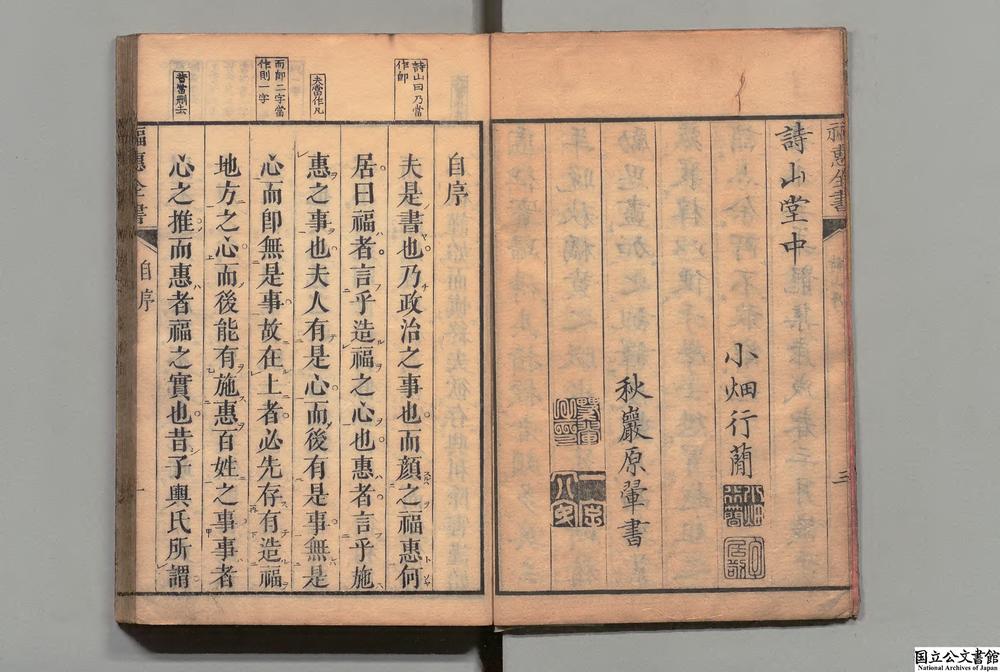 福惠全書
三
詩山堂中
小畑行蕳
小畑
行簡
秋巖原翬書
詩山曰乃當
作即
夫當作凡
而即二字當
作則一字
昔當刪去
自序
夫是書也乃政治之事也而顏之福惠何
居曰福者言乎造福之心也惠者言乎施
惠之事也夫人有是心而後有是事無是
心而卽無是事故在上者必先存有造福
地方之心而後能有施惠百姓之事事者
心之推而惠者福之實也昔子輿氏所謂
福惠全書
自序
一
国立公文書館
National Archives of Japan